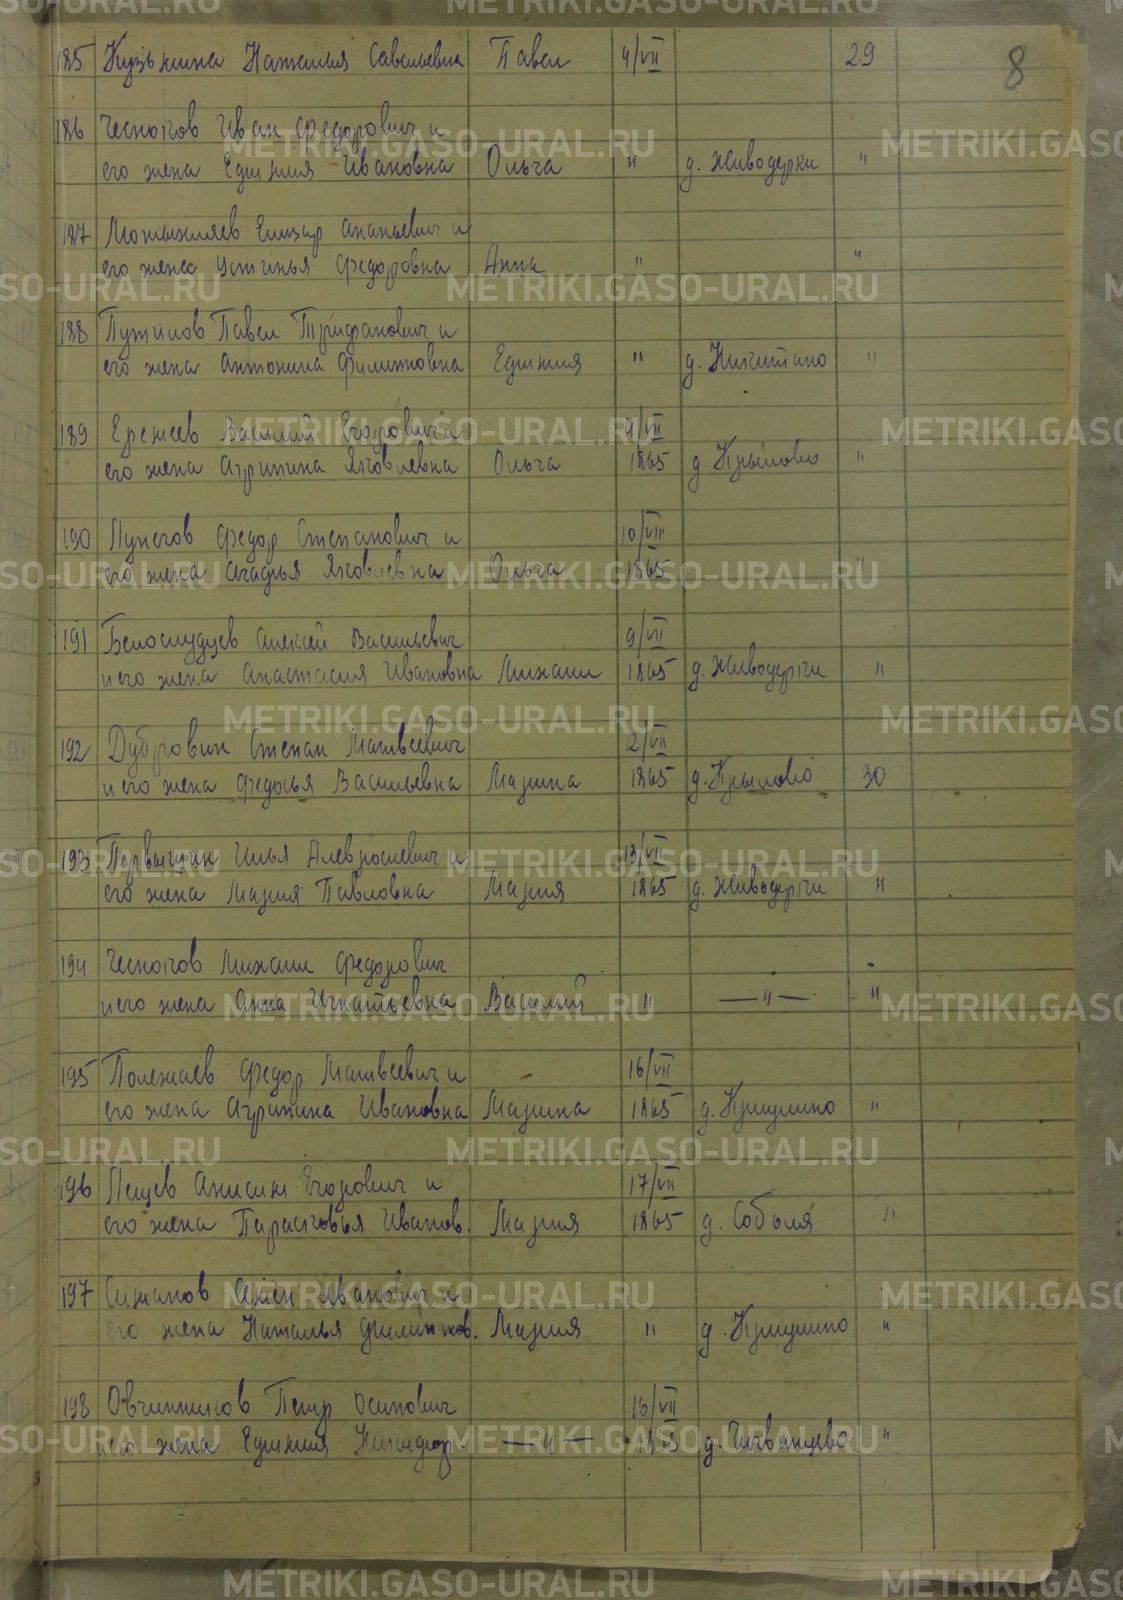 8
185 Кузьмина Наталья Савельевна Павел 4/VII 29
186 Чесноков Иван Федорович и
его жена Ефимия Ивановна Ольга " д. Живодерки "
187 Мотыхляев Елизар Ананьевич и
его жена Устинья Федоровна Анна " "
188 Путилов Павел Трифанович и
его жена Антонина Филиповна Ефимия " д. Никитино "
189 Ережеев Василий Егорович и 4/VII
его жена Агрипина Яковлевна Ольга 1865 д. Крылово "
190 Лунегов Федор Степанович и 10/VII
его жена Агафья Яковлевна Ольга 1865 "
191 Белослудцев Алексей Васильевич 9/VII
и его жена Анастасия Ивановна Михаил 1865 д. Живодерки "
192 Дубровин Степан Матвеевич 2/VII
и его жена Федосья Васильевна Марина 1865 д. Крылово 30
193 Первыгудин Илья Алевросиевич и 13/VII
его жена Мария Павловна Мария 1865 д. Живодерки "
194 Чесноков Михаил Федорович
и его жена Анна Игнатьевна Василий " —"— "
195 Полежаев Федор Матвеевич и 16/VII
его жена Агрипина Ивановна Марина 1865 д. Криулино "
196 Пещев Анисим Егорович и 17/VII
его жена Парасковья Иванов. Мария 1865 д. Соболя "
197 Симанов Семен Иванович и
его жена Наталья Филипов. Мария " д. Криулино "
198 Овчинников Петр Осипович 16/VII
и его жена Ефимия Никифор. —"— 1865 д. Чигвинцево "
METRIKI.GASO-URAL.RU